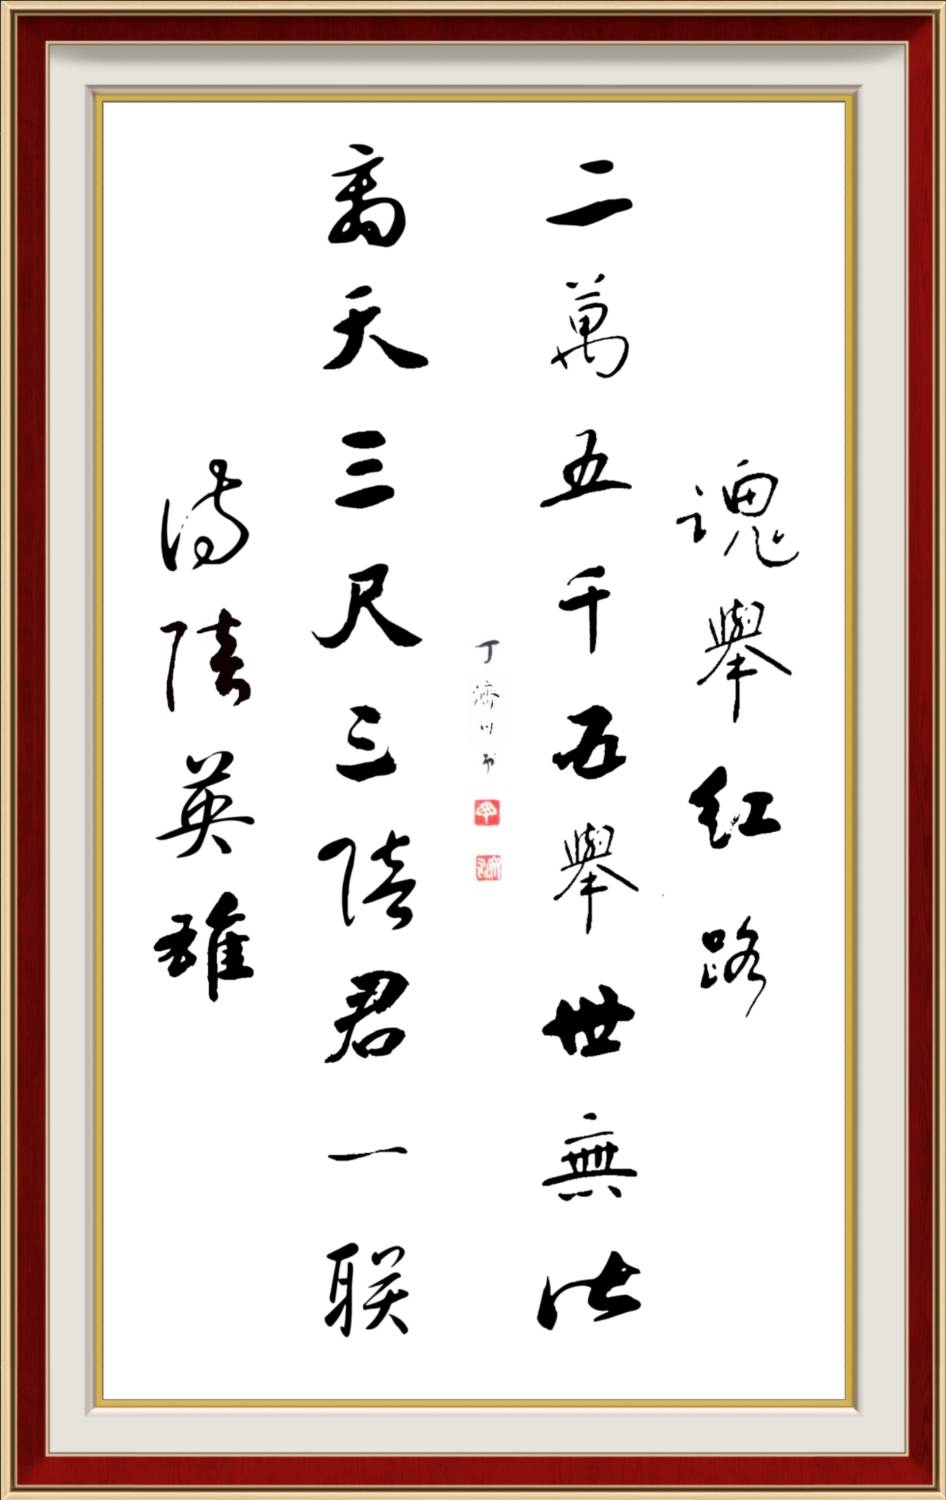 魂舉红路
二萬五千五舉世無比
丁濟川书
离天三尺三陪君一联
诗陪英雄